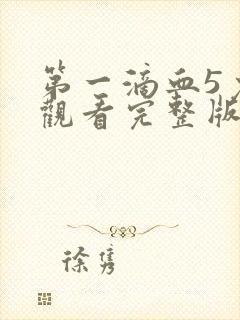 第一滴血5
觀看完整版
徐隽